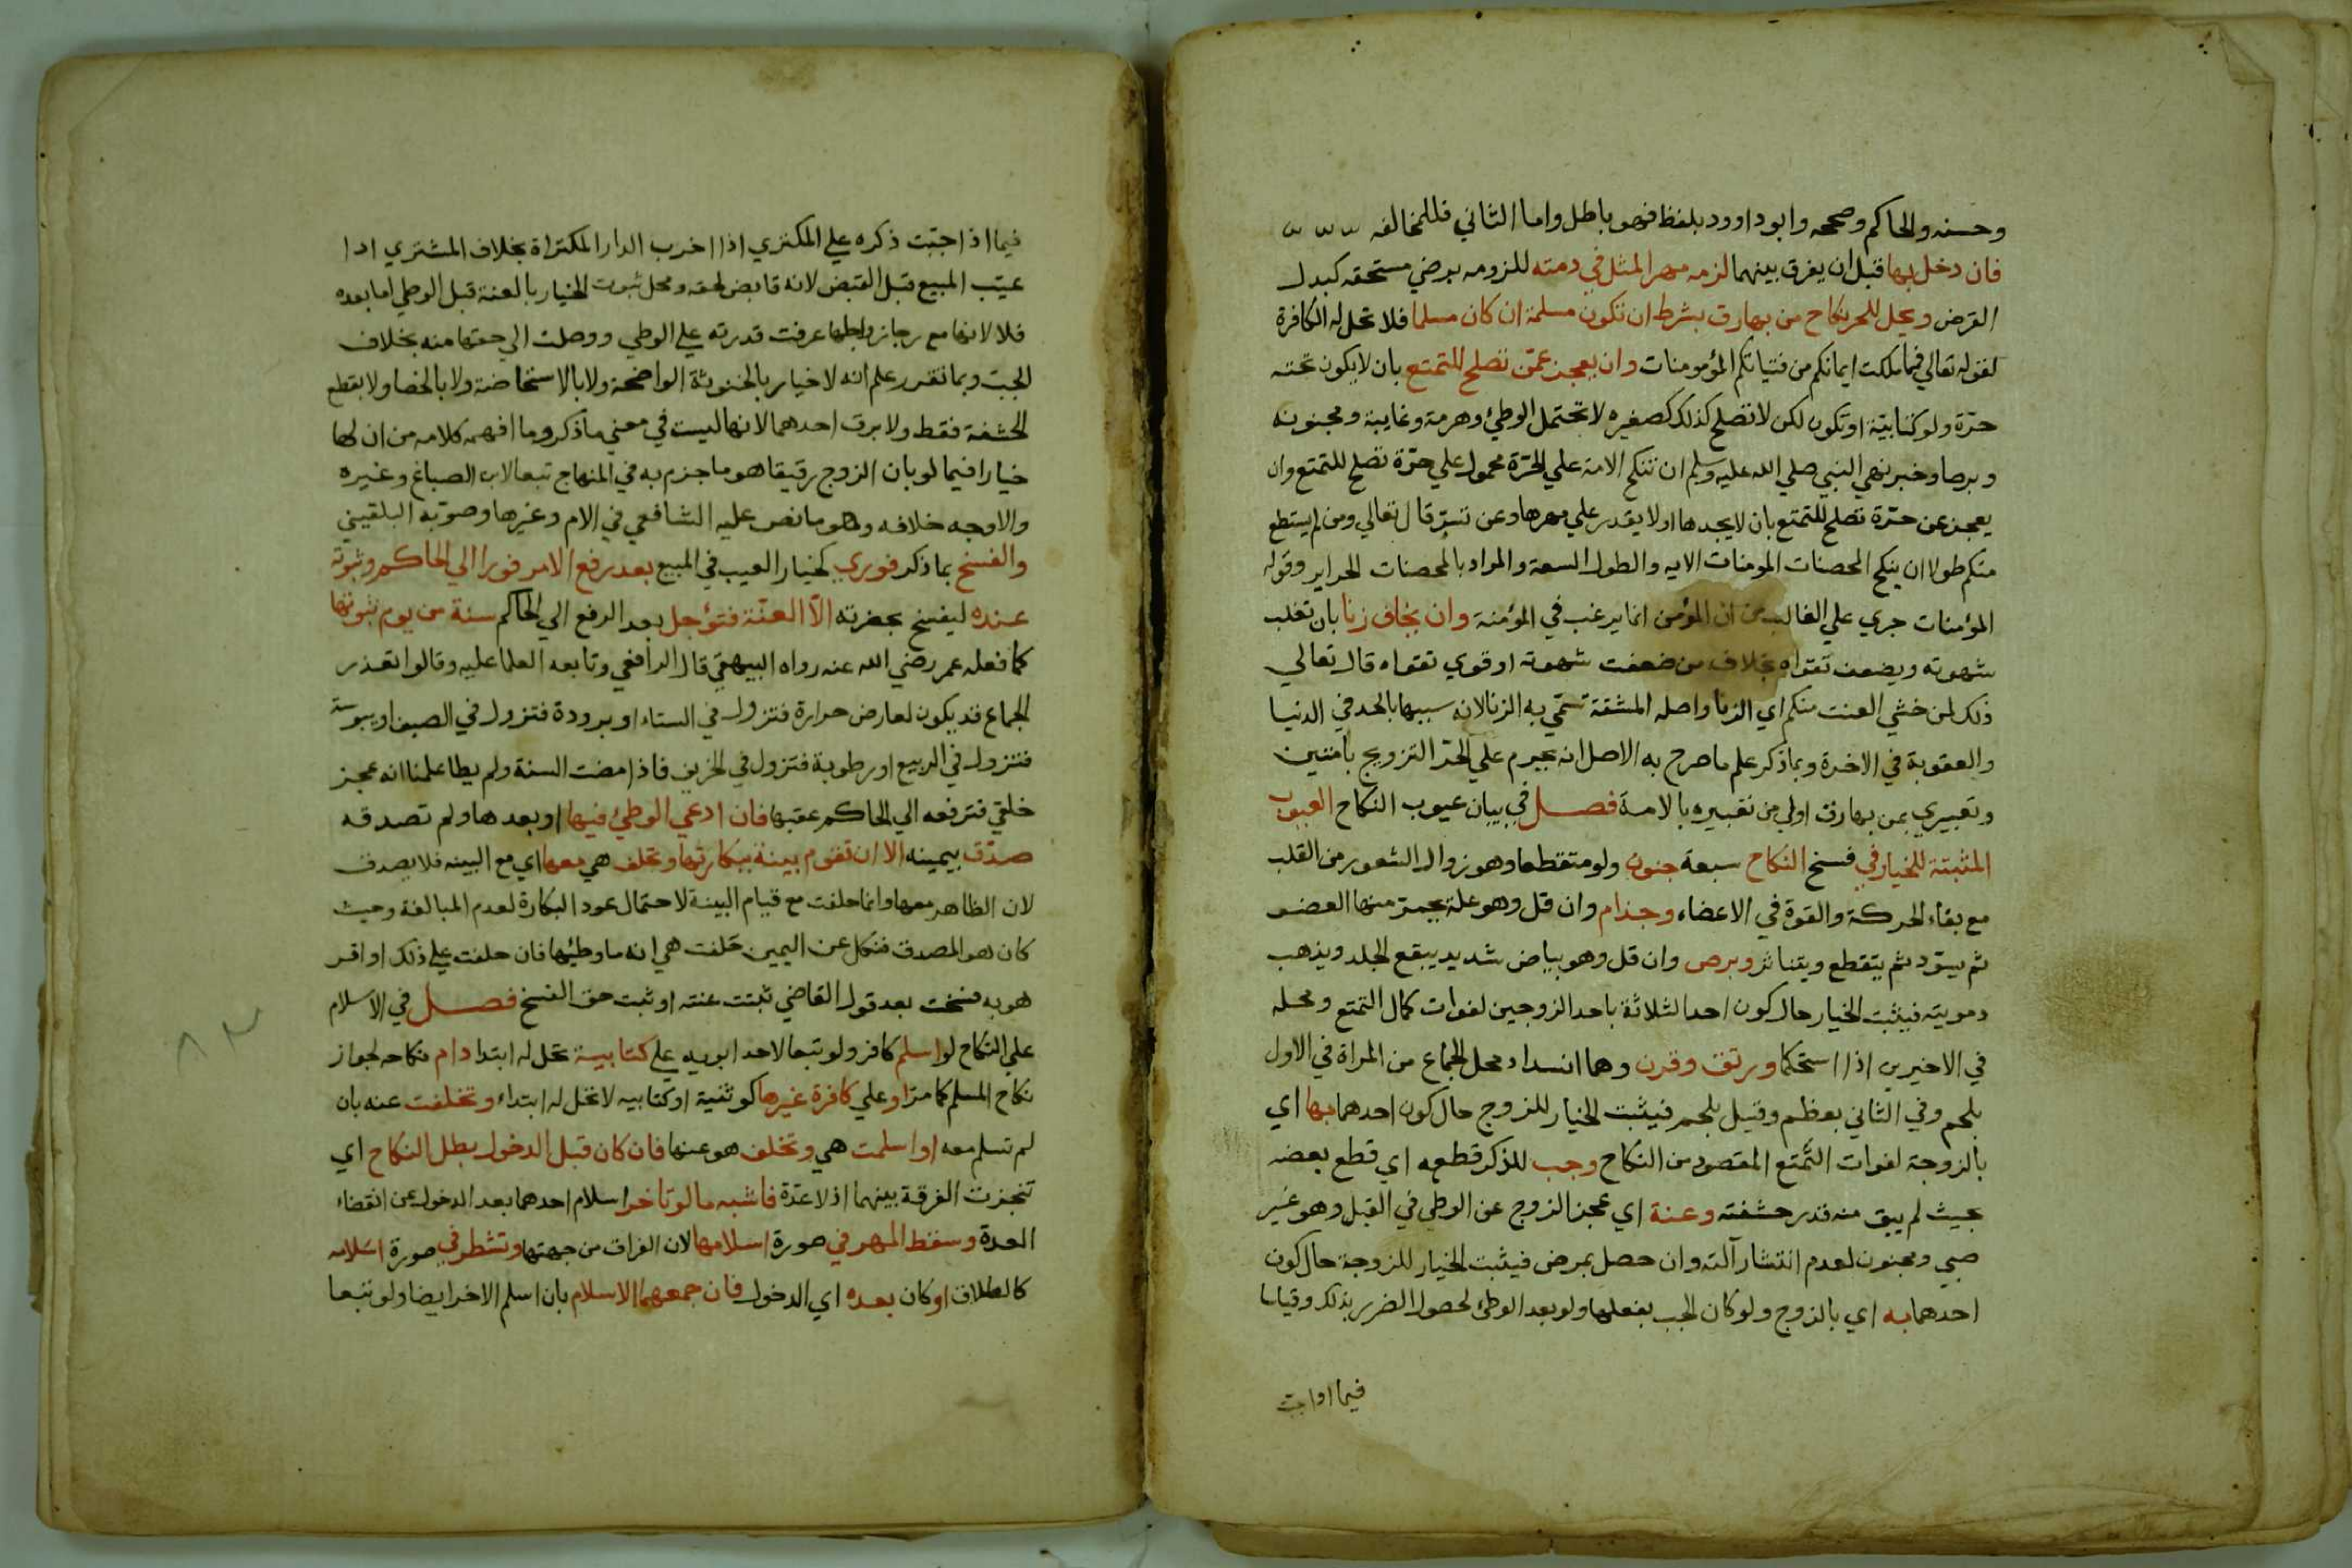 وحسنه والحاكم وصححه وابو داوود بلفظ فهو باطل واما الثاني فللمخالفه
فان دخل بها قبل ان يفرق بينهما لزمه مهر المثل في دمته للزومه برضي مستحقه كبدل
القرض ويحل للحر نكاح من بهارق بشرط ان تكون مسلمة ان كان مسلما فلا تحل له الكافرة
لقوله تعالي فيما ملكت ايمانكم من فتياتكم المؤمومنات وان يعجز عمن تصلح للتمتع بان لا يكون تحته
حرة ولو كتابية او تكون لكن لا تصلح كذلك كصغيره لا تحتمل الوطئ وهرمة وغايبة ومجنونه
وبرصا وخبر نهي النبي صلي الله عليه وسلم ان تنكح الامة علي الحرة محمول علي حرة تصلح للتمتع وان
يعجز عن حرة تصلح للتمتع بان لا يجدها او لا يقدر علي مهرها وعن تسر قال تعالي ومن لم يستطع
منكم طولا ان ينكح المحصنات المومنات الايه والطول السعة والمراد بالمحصنات الحراير وقوله
المؤمنات جري علي الغالب من ان المؤمن انما يرغب في المؤمنة وان يخاف زنا بان تغلب
شهوته ويضعف تقواه بخلاف من ضعفت شهوته او قوي تقواه قال تعالي
ذلك لمن خشي العنت منكم اي الزنا واصله المشقة سمي به الزنا لانه سببها بالحد في الدنيا
والعقوبة في الاخرة وبما ذكر علم ما صرح به الاصل انه يحرم علي الحر التزويج بامتين
وتعبيري بمن بهارق اولي من تعبيره بالامة فصل في بيان عيوب النكاح العيوب
المثبتة للخيار في فسخ النكاح سبعة جنون ولو متقطعا وهو زوال الشعور من القلب
مع بقاء الحركة والقوة في الاعضاء وجذام وان قل وهو علة يحمر منها العضو
ثم يسود ثم يتقطع ويتناثر وبرص وان قل وهو بياض شديد يبقع الجلد ويذهب
دمويته فيثبت الخيار حال كون احد الثلاثة باحد الزوجين لفوات كمال التمتع ومحله
في الاخيرين اذا استحكما ورتق وقرن وهما انسداد محل الجماع من المراة في الاول
بلحم وفي الثاني بعظم وقيل بلحم فيثبت الخيار للزوج حال كون احدهما بها اي
بالزوجة لفوات التمتع المقصود من النكاح وجب للذكر قطعه اي قطع بعضه
بحيث لم يبق منه قدر حشفته وعنة اي عجز الزوج عن الوطي في القبل وهو غير
صبي ومجنون لعدم انتشار آلته وان حصل بمرض فيثبت الخيار للزوجة حال كون
احدهما به اي بالزوج ولو كان الجب بفعلها ولو بعد الوطئ لحصول الضرر بذلك وقياسا
فيما اذا جبت
فيما اذا جبت ذكره علي المكتري اذا اخرب الدار المكتراة بخلاف المشتري اذا
عيب المبيع قبل القبض لانه قابض لحقه ومحل ثبوت الخيار بالعنة قبل الوطي اما بعده
فلا لانها مع رجا زوالها عرفت قدرته علي الوطي ووصلت الي حقها منه بخلاف
الجب وبما تقرر علم انه لا خيار بالخنوثة الواضحة ولا بالاستحاضة ولا بالخصا ولا بقطع
الحشفة فقط ولا برق احدهما لانها ليست في معني ما ذكر وما افهمه كلامه من ان لها
خيارا فيما لو بان الزوج رقيقا هو ما جزم به في المنهاج تبعا لابن الصباغ وغيره
والاوجه خلافه وهو ما نص عليه الشافعي في الام وغيرها وصوبه البلقيني
والفسخ بما ذكر فوري كخيار العيب في المبيع بعد رفع الامر فورا الي الحاكم وثبوته
عنده ليفسخ بحضرته الا العنة فتؤجل بعد الرفع الي الحاكم سنة من يوم ثبوتها
كما فعله عمر رضي الله عنه رواه البيهقي قال الرافعي وتابعه العلما عليه وقالوا تعذر
الجماع قد يكون لعارض حرارة فتزول في الستاء او برودة فتزول في الصيف او يبوسة
فتزول في الربيع او رطوبة فتزول في الخريف فاذا مضت السنة ولم يطا علمنا انه عجز
خلقي فترفعه الي الحاكم عقبها فان ادعي الوطئ فيها او بعدها ولم تصدقه
صدق بيمينه الا ان تقوم بينة ببكارتها وتحلف هي معها اي مع البينه فلا يصدق
لان الظاهر معها وانما حلفت مع قيام البينة لاحتمال عود البكارة لعدم المبالغة وحيث
كان هو المصدق فنكل عن اليمين حلفت هي انه ما وطئها فان حلفت علي ذلك او اقر
هو به فسخت بعد قول القاضي ثبتت عنته او ثبت حق الفسخ فصل في الاسلام
علي النكاح لو اسلم كافر ولو تبعا لاحد ابويه علي كتابية تحل له ابتدا دام نكاحه لجواز
نكاح المسلم كما مر او علي كافرة غيرها كوثنية او كتابيه لا تحل له ابتداء وتخلفت عنه بان
لم تسلم معه او اسلمت هي وتخلف هو عنها فان كان قبل الدخول بطل النكاح اي
تنجزت الفرقة بينهما اذ لا عدة فاشبه ما لو تاخر اسلام احدهما بعد الدخول عن انقضاء
العدة وسقط المهر في صورة اسلامها لان الفراق من جهتها وتشطر في صورة اسلامه
كالطلاق او كان بعده اي الدخول فان جمعهما الاسلام بان اسلم الاخر ايضا ولو تبعا
٨٣